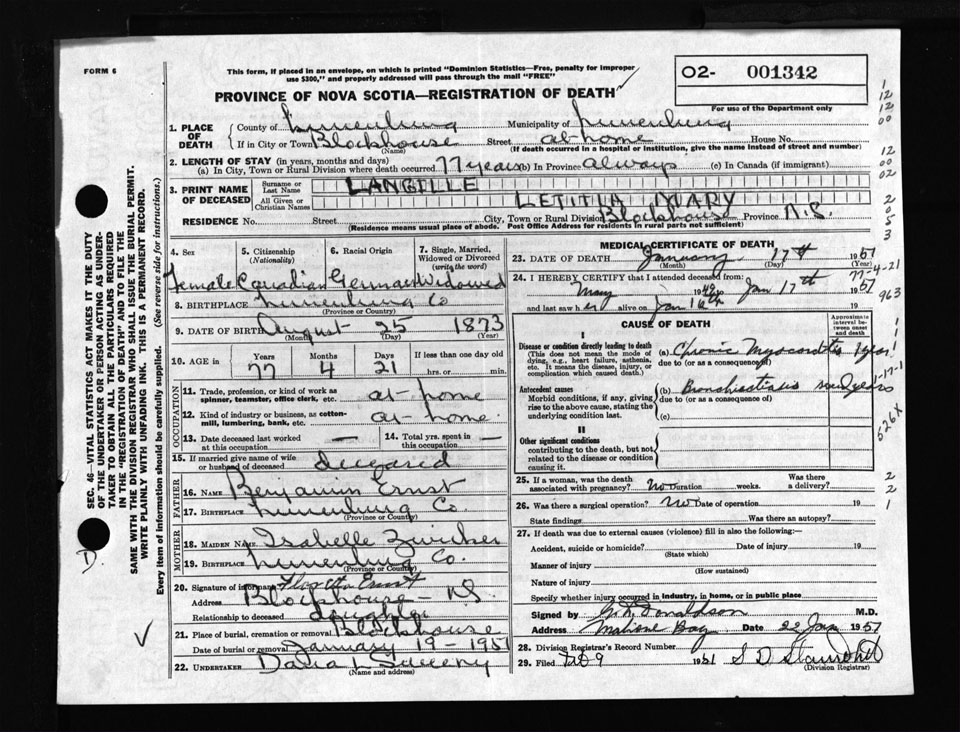 FORM 6
This form, if placed in an envelope, on which is printed "Dominion Statistics—Free, penalty for improper
use $300," and properly addressed will pass through the mail "FREE"
O2- 001342
For use of the Department only
PROVINCE OF NOVA SCOTIA—REGISTRATION OF DEATH
1. PLACE OF DEATH
County of Lunenburg Municipality of Lunenburg
If in City or Town Blockhouse Street at home House No.
(Name) (If death occurred in a hospital or institution, give the name instead of street and number)
2. LENGTH OF STAY (in years, months and days)
(a) In City, Town or Rural Division where death occurred 77 years (b) In Province always (c) In Canada (if immigrant)
3. PRINT NAME OF DECEASED
Surname or Last Name LANGILLE
All Given or Christian Names LETITIA MARY
RESIDENCE No. Street City, Town or Rural Division Blockhouse Province N.S.
(Residence means usual place of abode. Post Office Address for residents in rural parts not sufficient)
4. Sex
5. Citizenship (Nationality)
6. Racial Origin
7. Single, Married, Widowed or Divorced (write the word)
Female Canadian German Widowed
8. BIRTHPLACE Lunenburg Co
(Province or Country)
9. DATE OF BIRTH August 25 1873
(Month) (Day) (Year)
10. AGE in Years Months Days If less than one day old
77 4 21 hrs. or min.
OCCUPATION
11. Trade, profession, or kind of work as
spinner, teamster, office clerk, etc. at-home
12. Kind of industry or business, as cotton-
mill, lumbering, bank, etc. at-home
13. Date deceased last worked at this occupation —
14. Total yrs. spent in this occupation —
15. If married give name of wife
or husband of deceased deceased
FATHER
16. NAME Benjamin Ernst
17. BIRTHPLACE Lunenburg Co.
(Province or Country)
MOTHER
18. MAIDEN NAME Isabelle Zwicker
19. BIRTHPLACE Lunenburg Co.
(Province or Country)
20. Signature of informant Ernst
Address Blockhouse - N.S.
Relationship to deceased daughter
21. Place of burial, cremation or removal Blockhouse
Date of burial or removal January 19 - 1951
22. UNDERTAKER Sweeny
(Name and address)
MEDICAL CERTIFICATE OF DEATH
23. DATE OF DEATH January 17th 1951
(Month) (Day) (Year)
24. I HEREBY CERTIFY that I attended deceased from:
May 19 to Jan 17th 1951
and last saw her alive on Jan 16th 19
CAUSE OF DEATH
Approximate interval between onset and death
I
Disease or condition directly leading to death
(This does not mean the mode of dying, e.g., heart failure, asthenia, etc. It means the disease, injury, or complication which caused death.)
(a) Chronic Myocarditis 1 year
due to (or as a consequence of)
Antecedent causes
Morbid conditions, if any, giving rise to the above cause, stating the underlying condition last.
(b) Bronchiectasis
due to (or as a consequence of)
(c)
II
Other significant conditions
contributing to the death, but not related to the disease or condition causing it.
25. If a woman, was the death Was there
associated with pregnancy? No Duration weeks. a delivery?
26. Was there a surgical operation? No Date of operation 19
State findings Was there an autopsy?
27. If death was due to external causes (violence) fill in also the following:
Accident, suicide or homicide? Date of injury 19
(State which)
Manner of injury
(How sustained)
Nature of injury
Specify whether injury occurred in industry, in home, or in public place
Signed by Donaldson M.D.
Address Mahone Bay Date 22 Jan 1951
28. Division Registrar's Record Number 7
29. Filed Feb 9 1951 S D
(Division Registrar)
SEC. 46—VITAL STATISTICS ACT MAKES IT THE DUTY
OF THE UNDERTAKER OR PERSON ACTING AS UNDER-
TAKER TO OBTAIN ALL THE PARTICULARS REQUIRED
IN THE "REGISTRATION OF DEATH" AND TO FILE THE
SAME WITH THE DIVISION REGISTRAR WHO SHALL ISSUE THE BURIAL PERMIT.
WRITE PLAINLY WITH UNFADING INK. THIS IS A PERMANENT RECORD.
Every item of information should be carefully supplied. (See reverse side for instructions.)
D.
1
12
12
00
12
00
02
2
0
5
3
77-4-21
963
526X
2
2
1